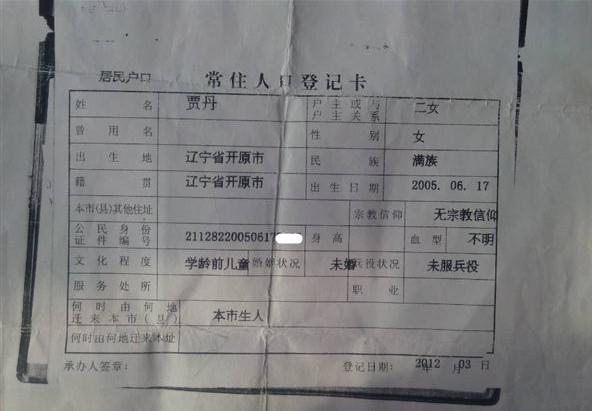 居民户口 常住人口登记卡
姓名 贾丹 户主或与户主关系 二女
曾用名 性别 女
出生地 辽宁省开原市 民族 满族
籍贯 辽宁省开原市 出生日期 2005.06.17
本市(县)其他住址 宗教信仰 无宗教信仰
公民身份证件编号 21128220050617 身高 血型 不明
文化程度 学龄前儿童 婚姻状况 未婚 兵役状况 未服兵役
服务处所 职业
何时由何地迁来本市(县) 本市生人
何时由何地迁来本址
承办人签章: 登记日期: 2012 年 03 月 日